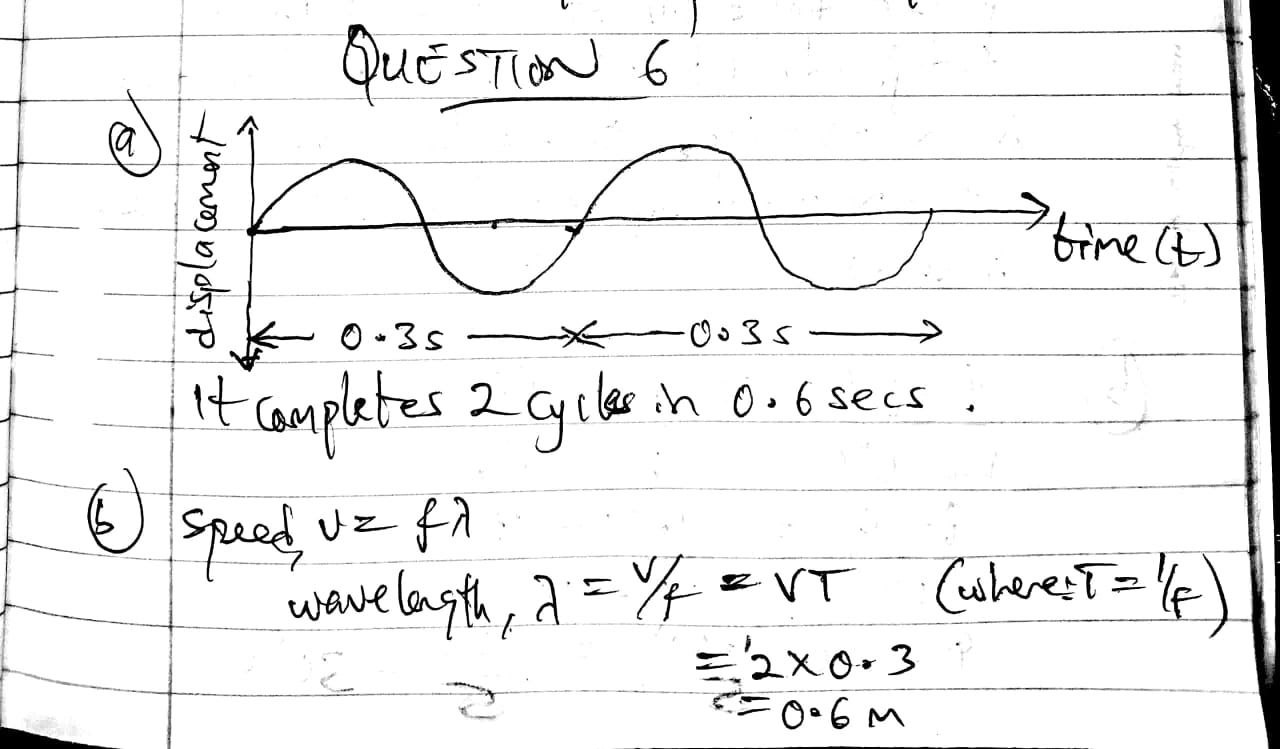 QUESTION 6
a)
displacement
time (t)
0.3s
0.3s
It completes 2 cycles in 0.6 secs.
b) speed, v = fλ
wavelength, λ = v/f = VT (where T = 1/f)
= 2 x 0.3
= 0.6 m